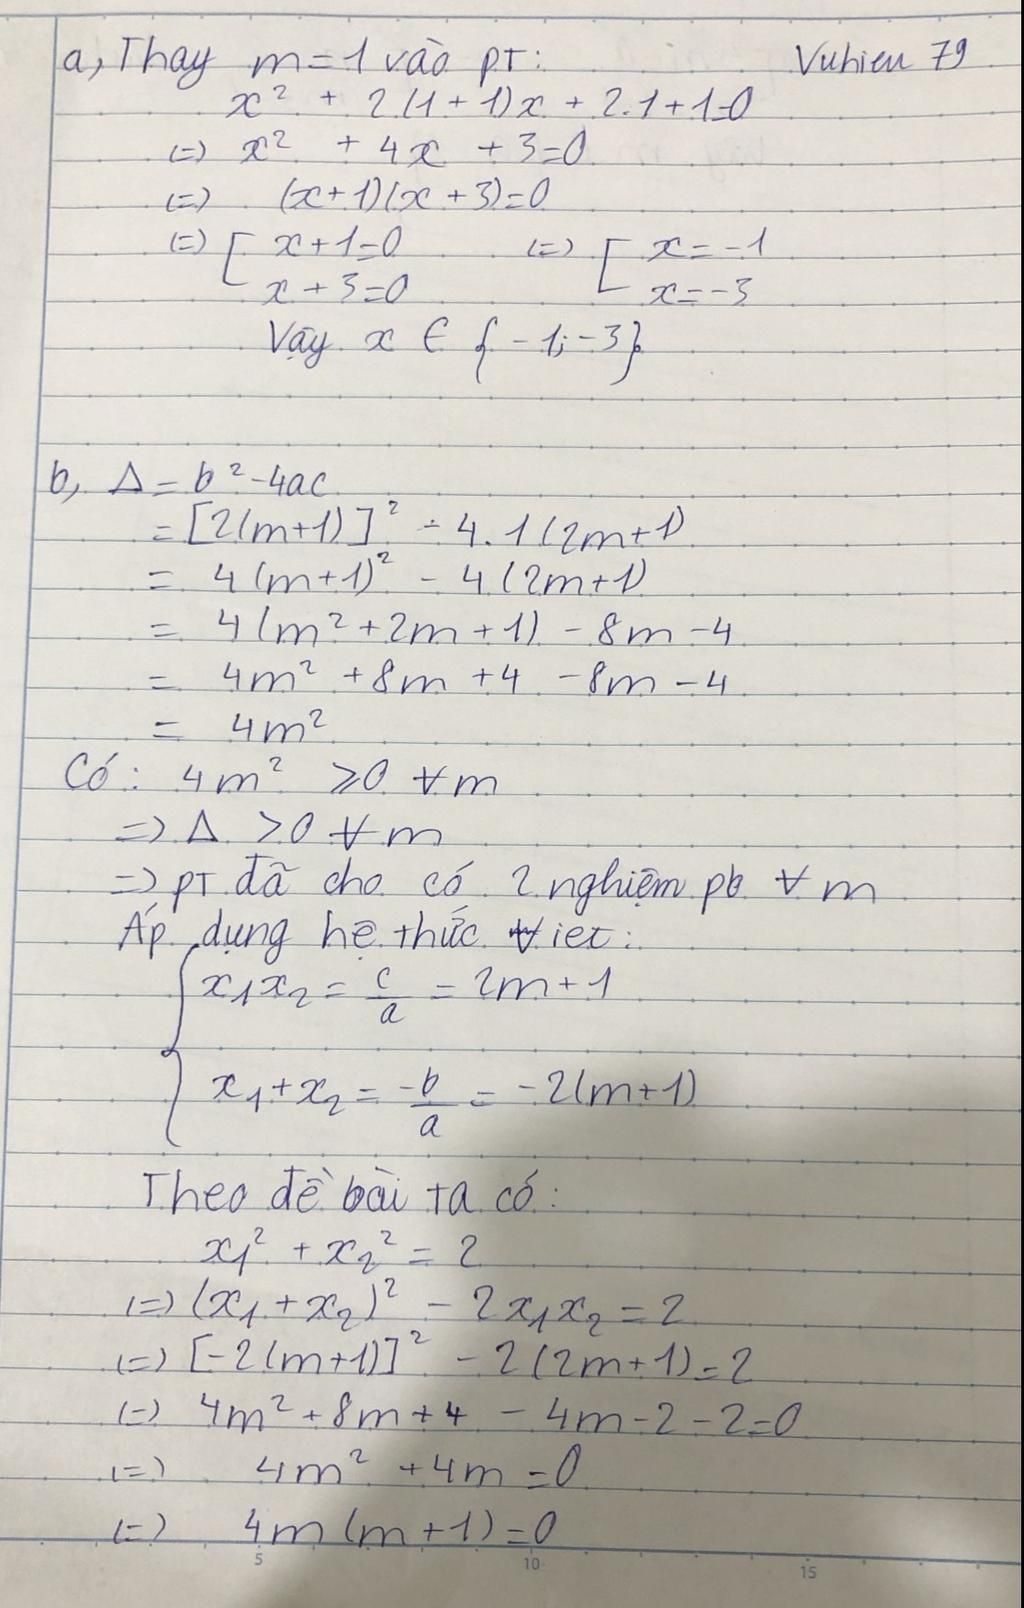 a, Thay m=1 vào pt: Vuhieu 79
x² + 2(1+1)x + 2.1+1=0
(=) x² + 4x + 3=0
(=) (x+1)(x+3)=0
(=) [ x+1=0 (=) [ x=-1
x+3=0 x=-3
Vậy x ∈ {-1;-3}
b, Δ = b²-4ac
= [2(m+1)]² - 4.1(2m+1)
= 4(m+1)² - 4(2m+1)
= 4(m²+2m+1) - 8m-4
= 4m² +8m+4 -8m-4
= 4m²
Có: 4m² ≥0 ∀m
=> Δ >0 ∀m
=> pt đã cho có 2 nghiệm pb ∀m
Áp dụng hệ thức Viet:
{ x₁x₂ = c/a = 2m+1
x₁+x₂ = -b/a = -2(m+1)
Theo đề bài ta có:
x₁² + x₂² = 2
(=) (x₁+x₂)² - 2x₁x₂=2
(=) [-2(m+1)]² - 2(2m+1)=2
(=) 4m²+8m+4 - 4m-2-2=0
(=) 4m² +4m=0
(=) 4m(m+1)=0
5 10 15